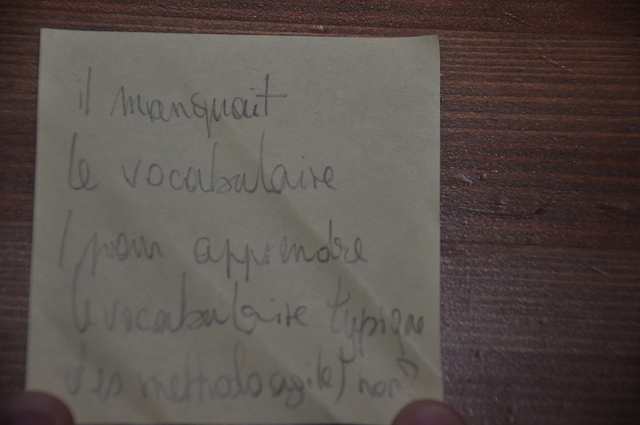 il manquait
le vocabulaire
(pour apprendre
le vocabulaire typique
des methodo agile) non?